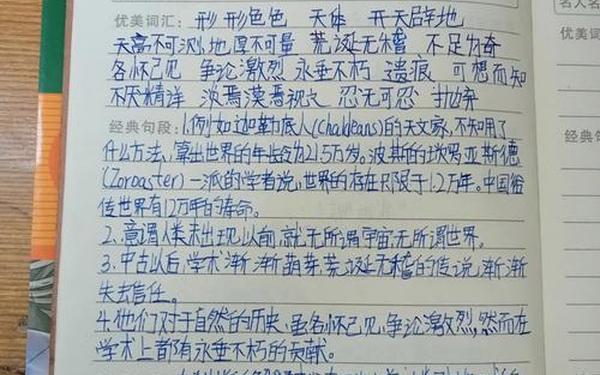 优美词汇：形形色色 天体 开天辟地
天高不可测,地厚不可量 荒诞无稽 不足为奇
各怀己见 争论激烈 永垂不朽 遗痕 可想而知
不厌精详 淡焉漠焉视之 忍无可忍
经典句段：1.例如迦勒底人(Chaldeans)的天文家,不知用了
什么方法,算出世界的年龄为21.5万岁。波斯的琐罗亚斯德
(Zoroaster)一派的学者说,世界的存在只限于1.2万年。中国俗
传世界有12万年的寿命。
2.意谓人类未出现以前,就无所谓宇宙,无所谓世界。
3.中古以后,学术渐渐萌芽,荒诞无稽的传说,渐渐
失去信任。
4.他们对于自然的历史,虽各怀己见,争论激烈,然而在
学术上都有永垂不朽的贡献。
名人名
优美词
经典句